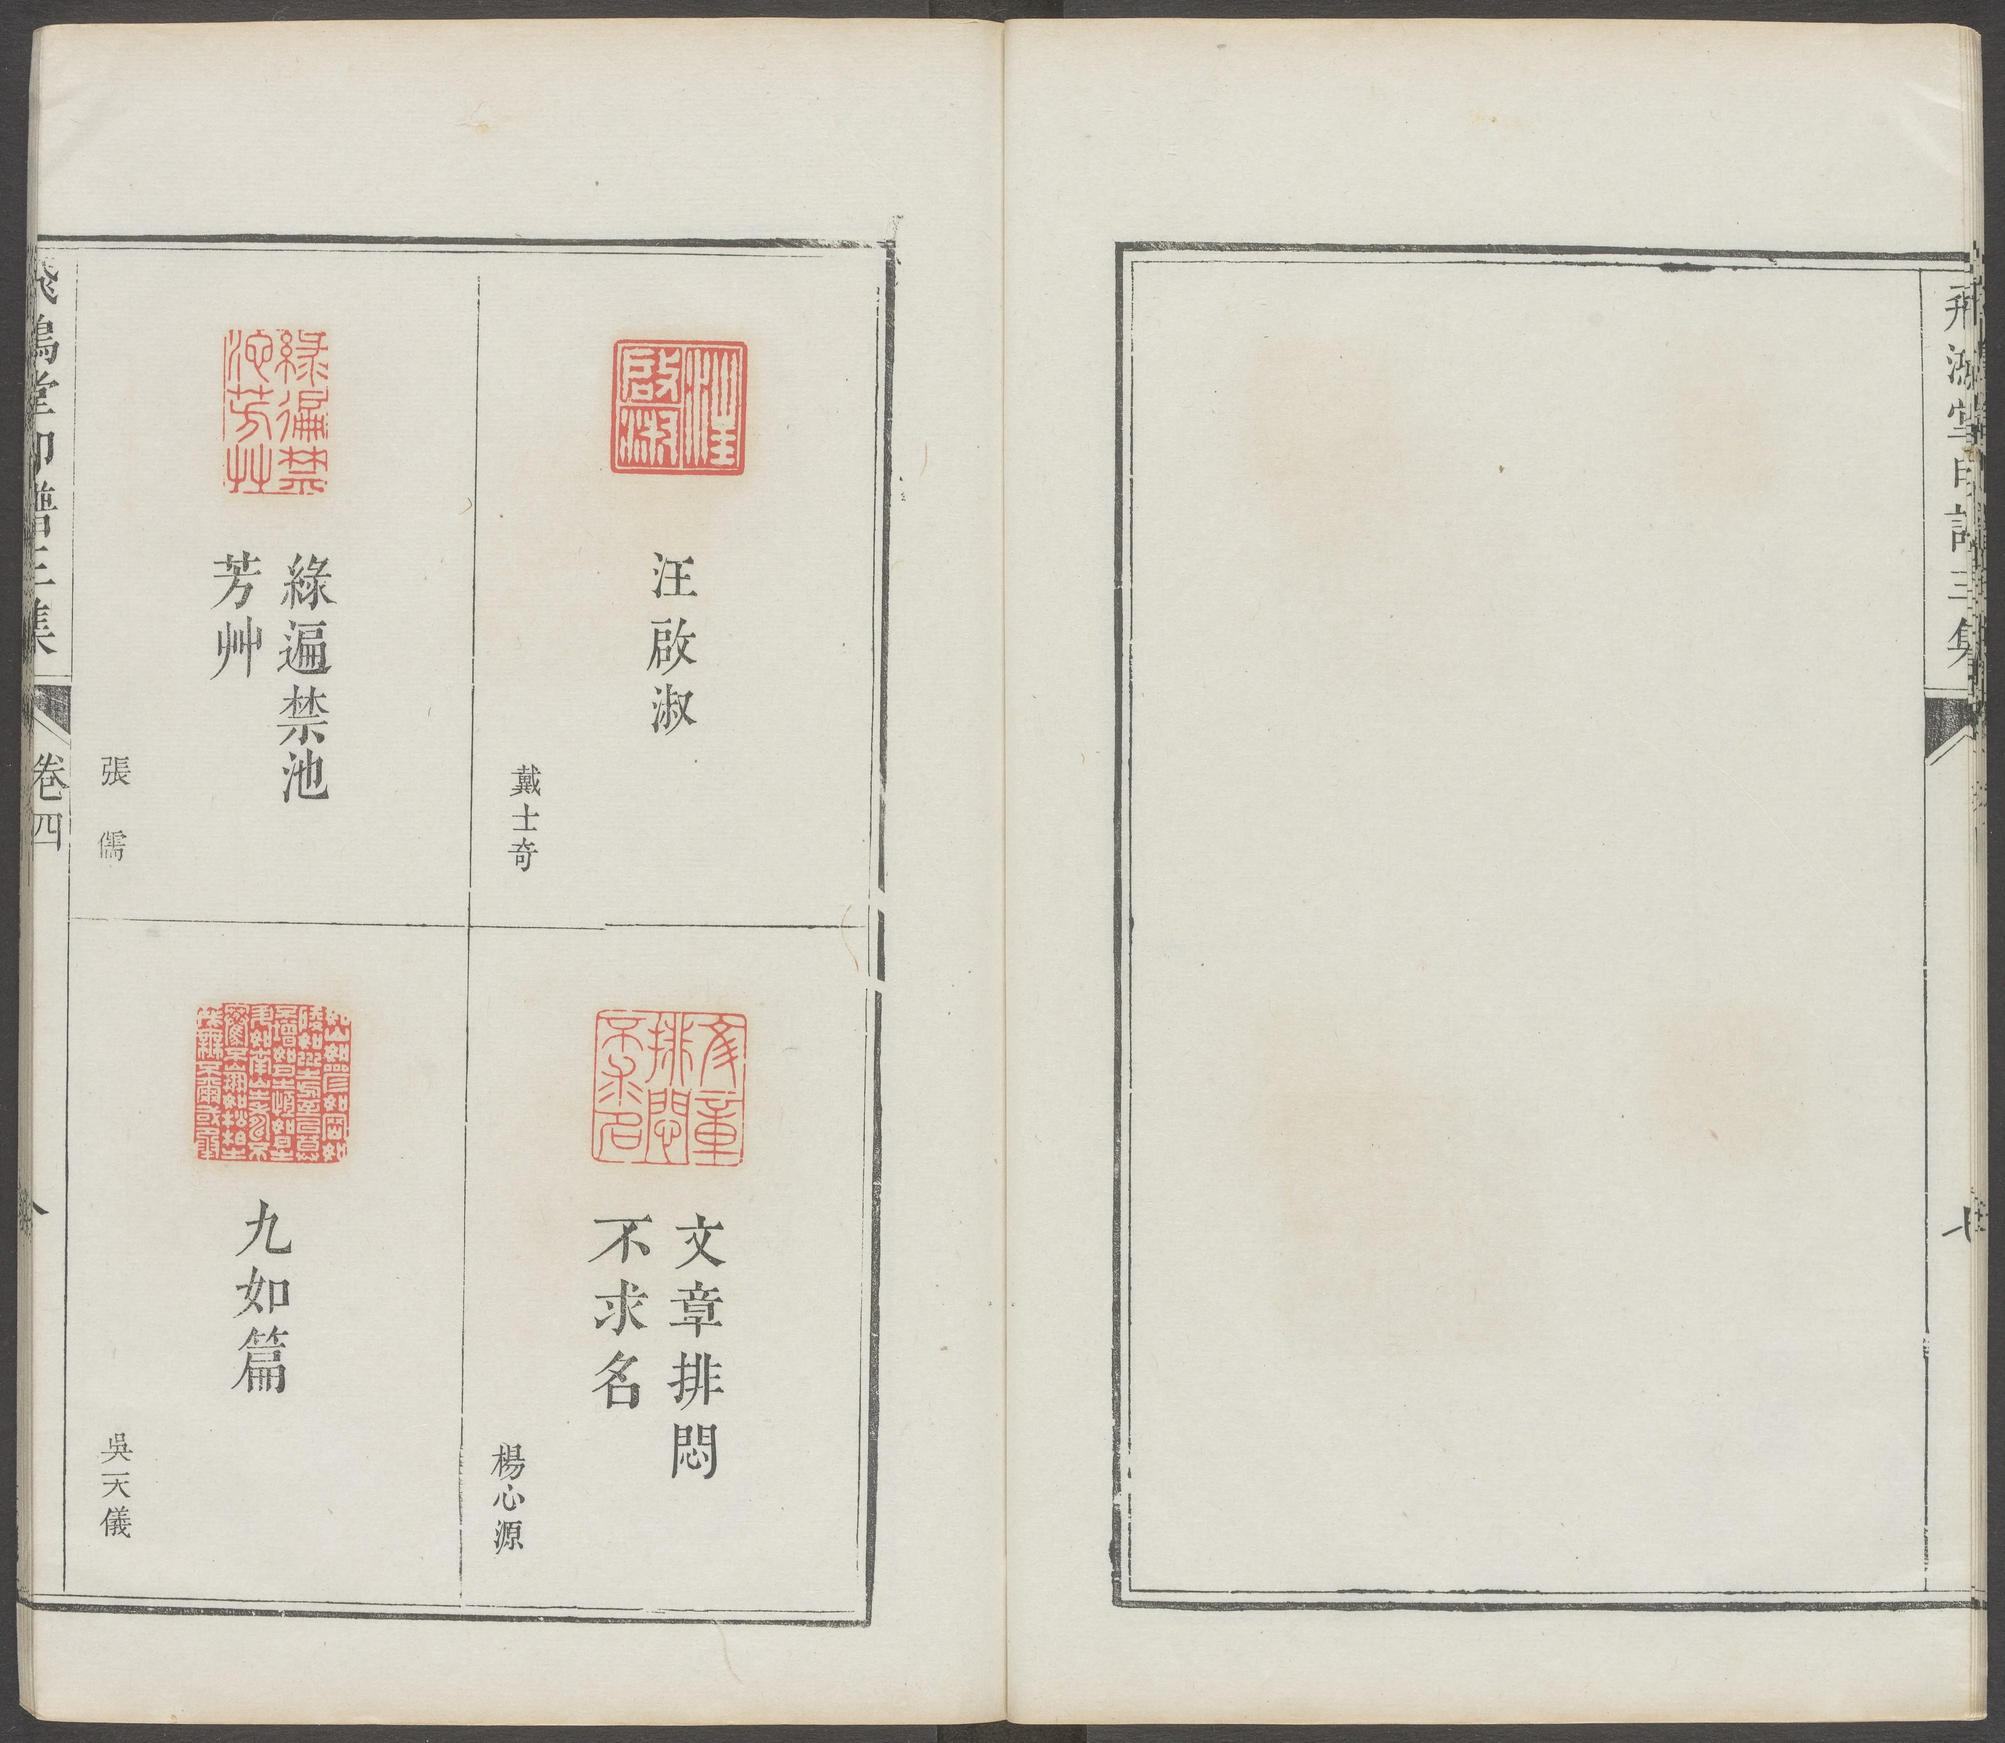 飛鴻堂印譜三集
七
汪啟淑
戴士奇
文章排悶
不求名
楊心源
綠遍禁池
芳艸
張儒
九如篇
吳天儀
飛鴻堂印譜三集
卷四
八